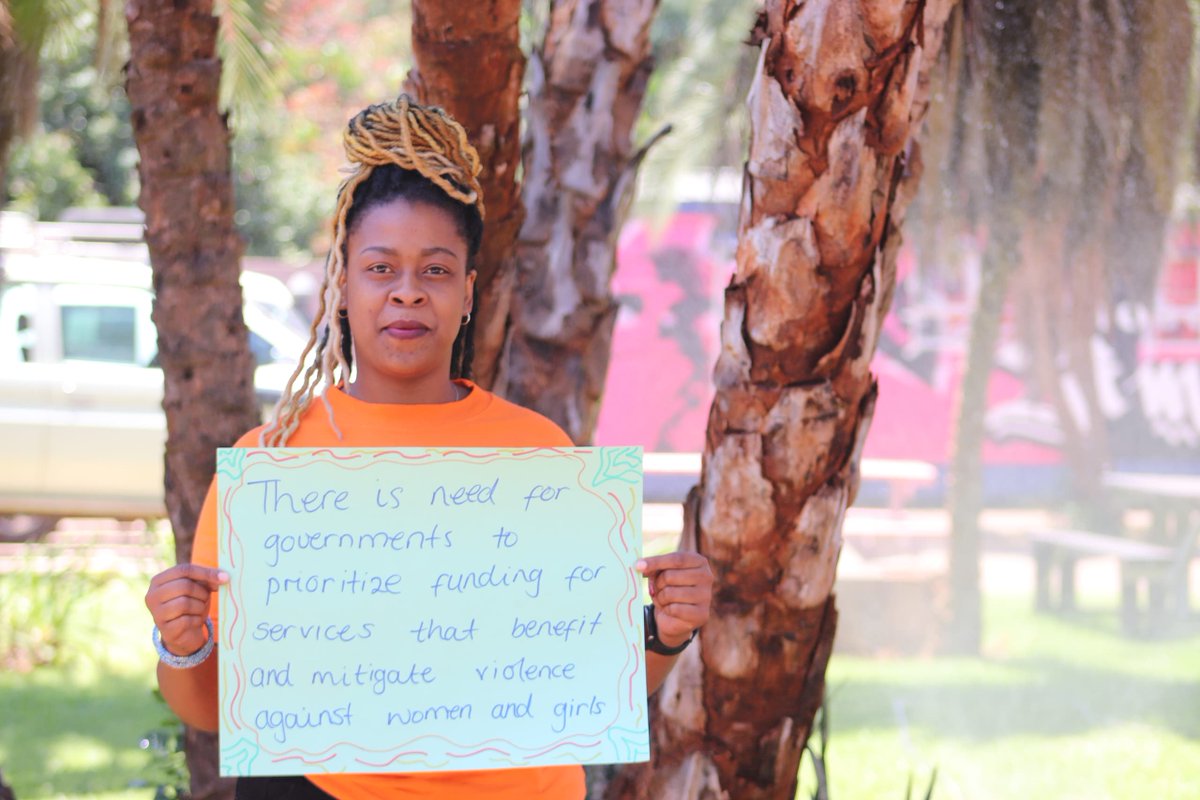 There is need for
governments to
prioritize funding for
services that benefit
and mitigate violence
against women and girls